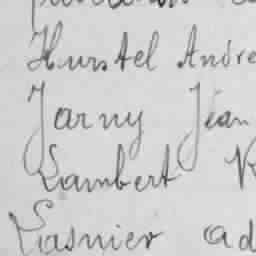 Hurstel André
Jarny Jean
Lambert
Lasnier ad